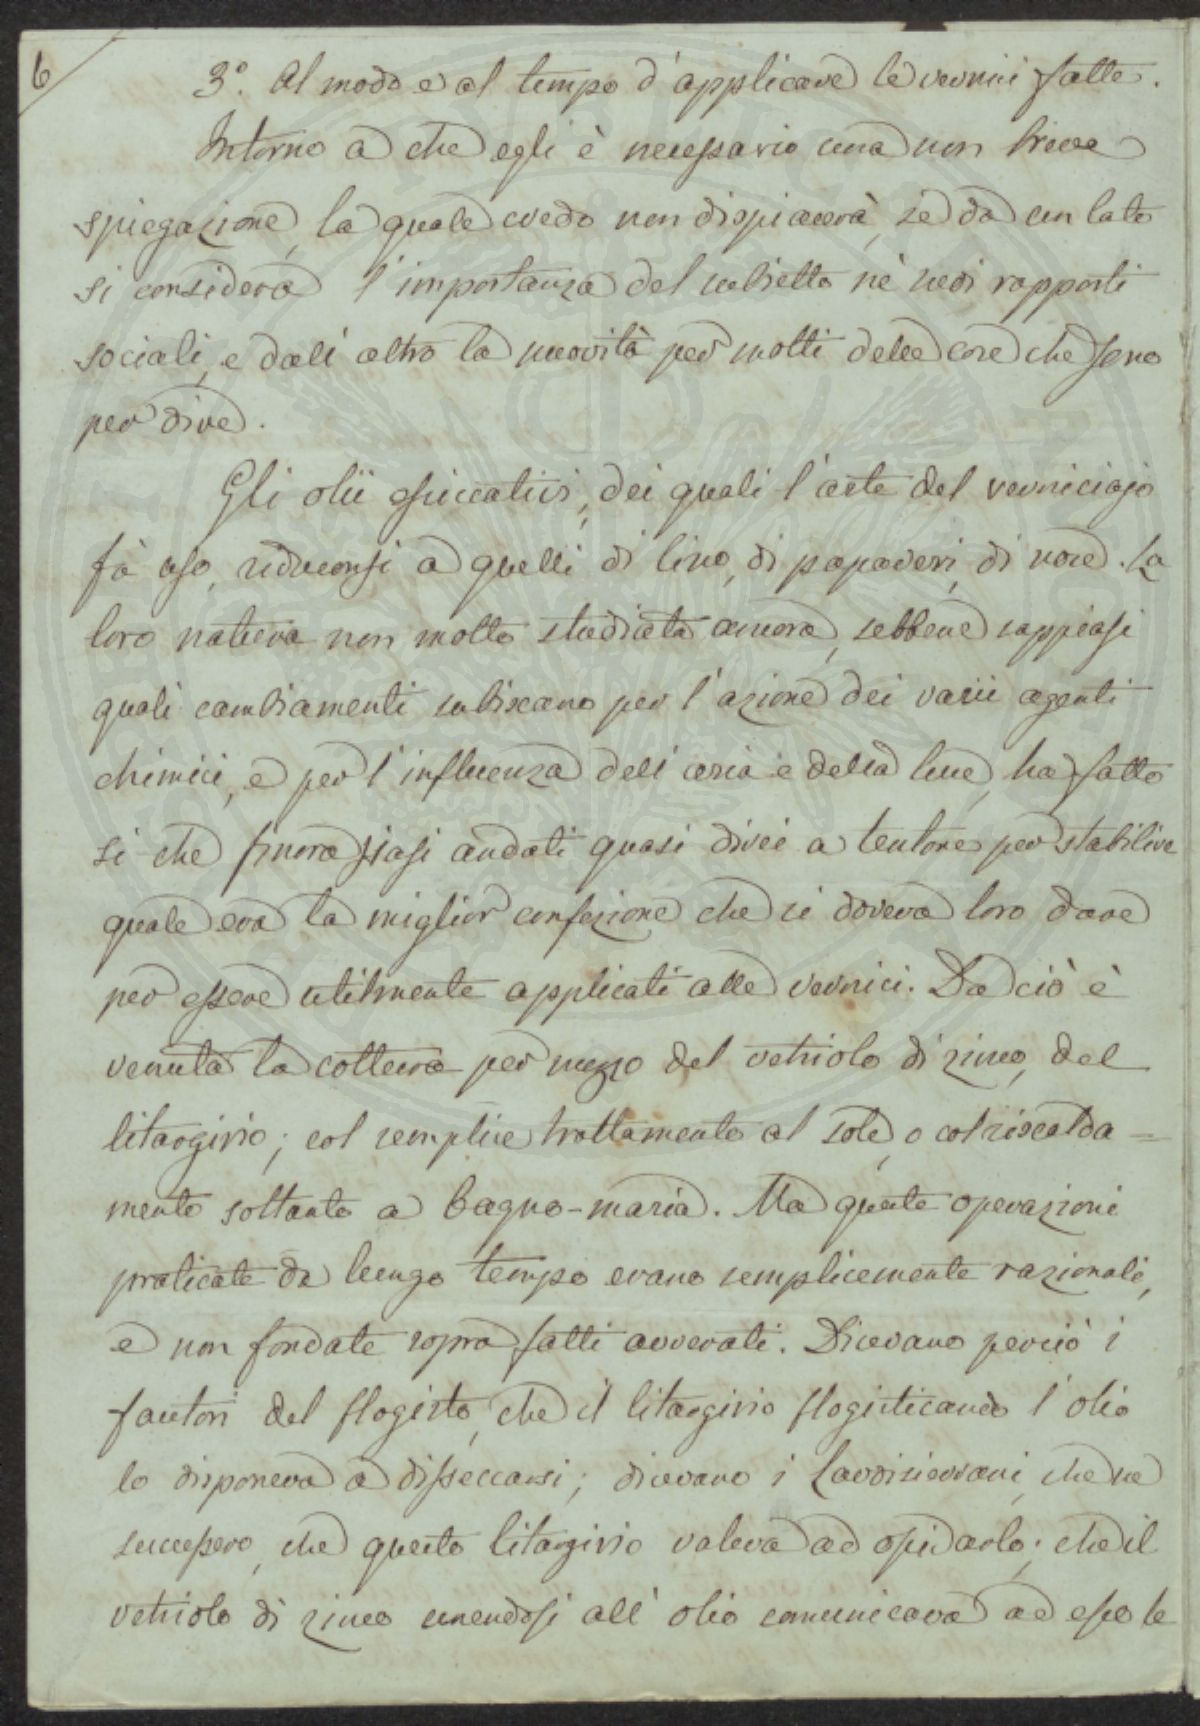 6
3.° Al modo e al tempo d'applicare le vernici fatte.
Intorno a che egli è necessario una non breve
spiegazione, la quale credo non dispiacerà, se da un lato
si considera l'importanza del subietto ne' suoi rapporti
sociali, e dall'altro la novità per molti delle cose che sono
per dire.
Gli olii essiccativi, dei quali l'arte del verniciajo
fà uso, riduconsi a quelli di lino, di papaveri, di noce. La
loro natura non molto studiata ancora, sebbene sappiasi
quali cambiamenti subiscano per l'azione dei varii agenti
chimici, e per l'influenza dell'aria e della luce, ha fatto
si che finora siasi andati quasi direi a tentone per stabilire
quale era la miglior confezione che si doveva loro dare
per essere utilmente applicati alle vernici. Da ciò è
venuta la cottura per mezzo del vetriolo di zinco, del
litargirio; col semplice trattamento al sole, o col riscalda=
mento soltanto a bagno-maria. Ma queste operazioni
praticate da lungo tempo erano semplicemente razionali,
e non fondate sopra fatti avverati. Dicevano perciò i
fautori del flogisto, che il litargirio flogisticando l'olio
lo disponeva a disseccarsi; dicevano i Lavoisieriani, che ne
successero, che questo litargirio valeva ad ossidarlo; che il
vetriolo di zinco unendosi all'olio comunicava ad esso le